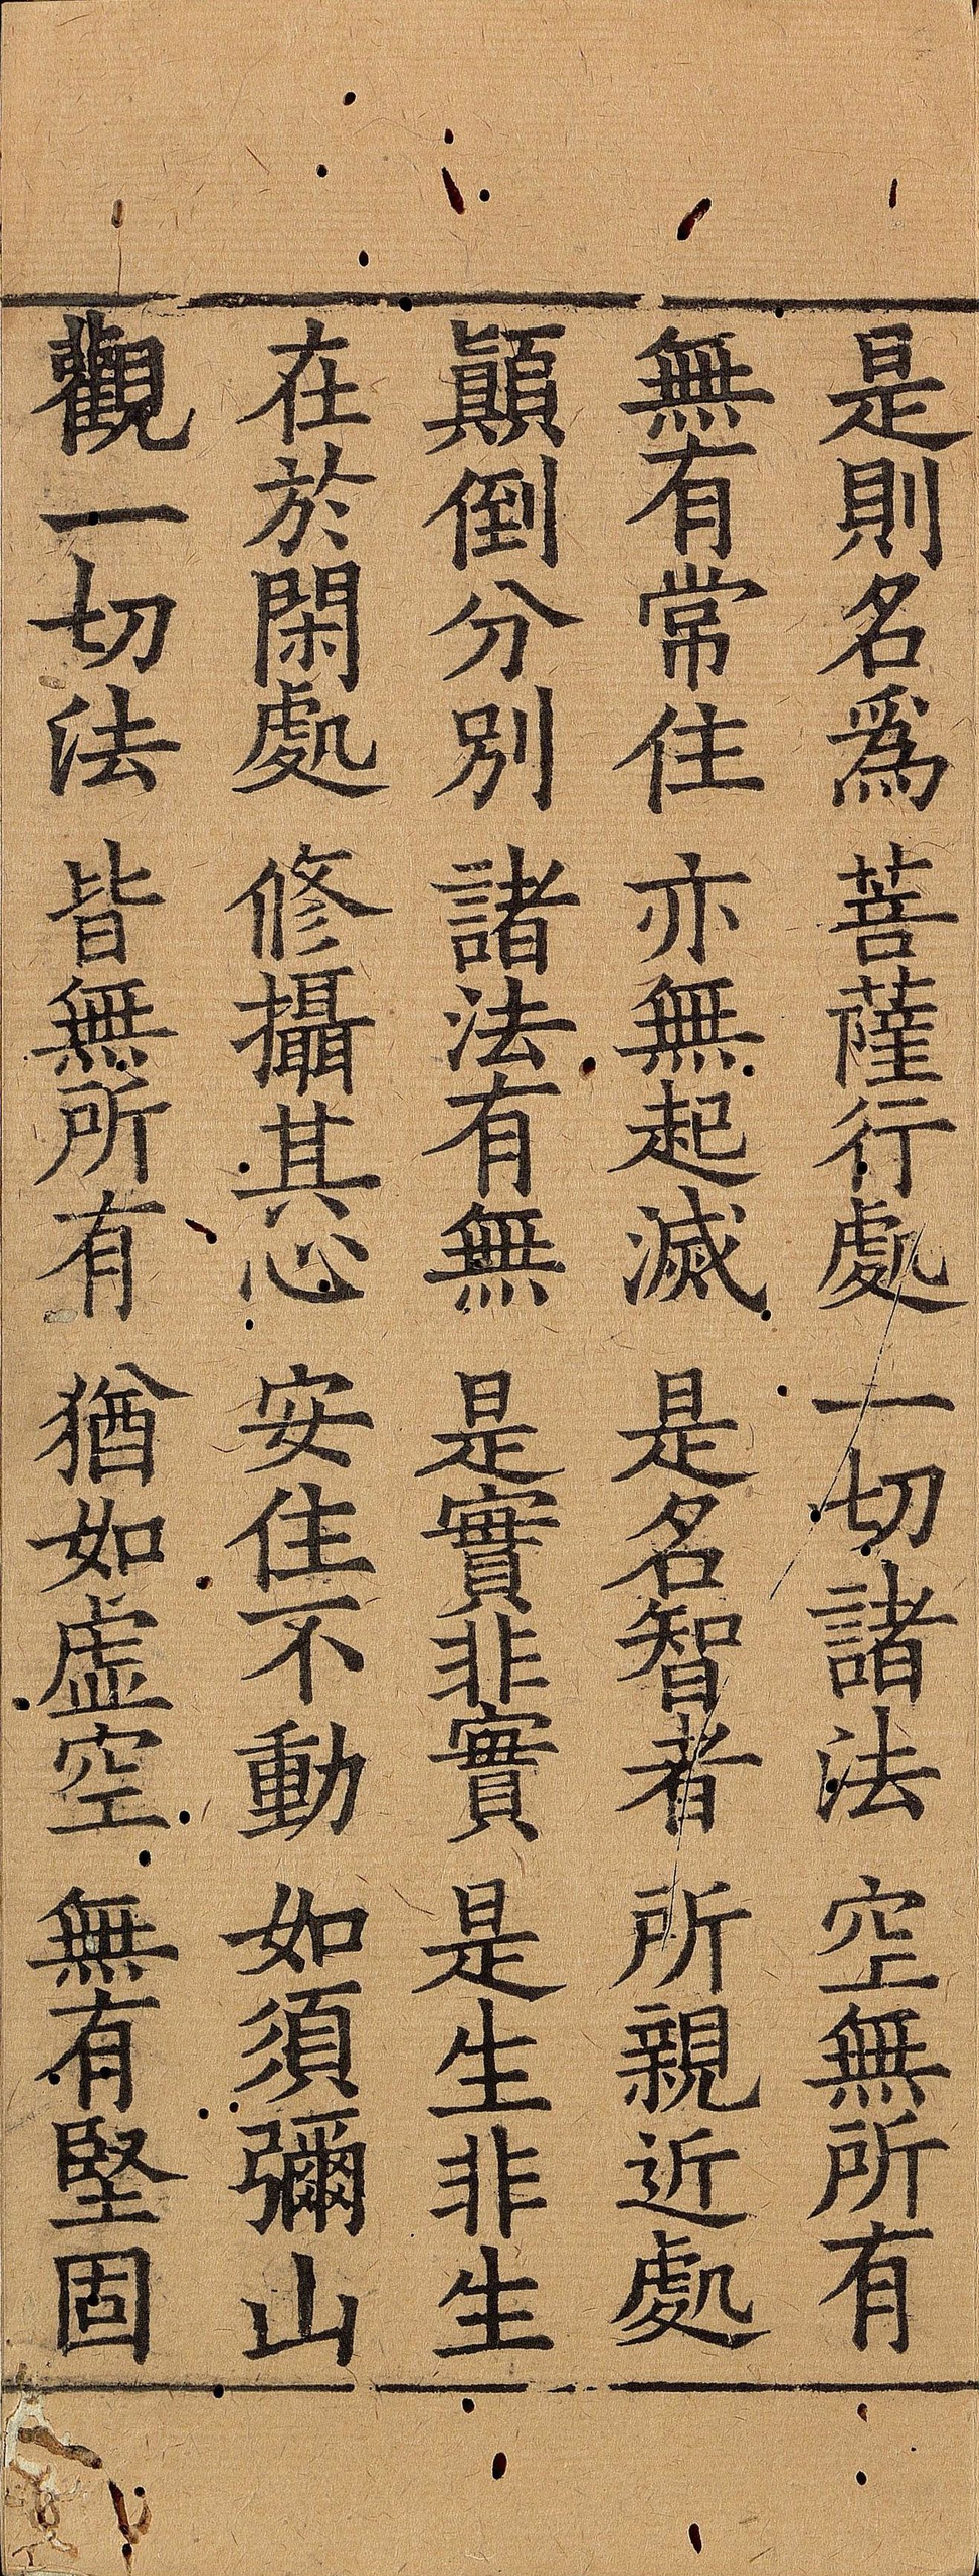 是則名爲 菩薩行處 一切諸法 空無所有
無有常住 亦無起滅 是名智者 所親近處
顚倒分別 諸法有無 是實非實 是生非生
在於閑處 修攝其心 安住不動 如須彌山
觀一切法 皆無所有 猶如虛空 無有堅固